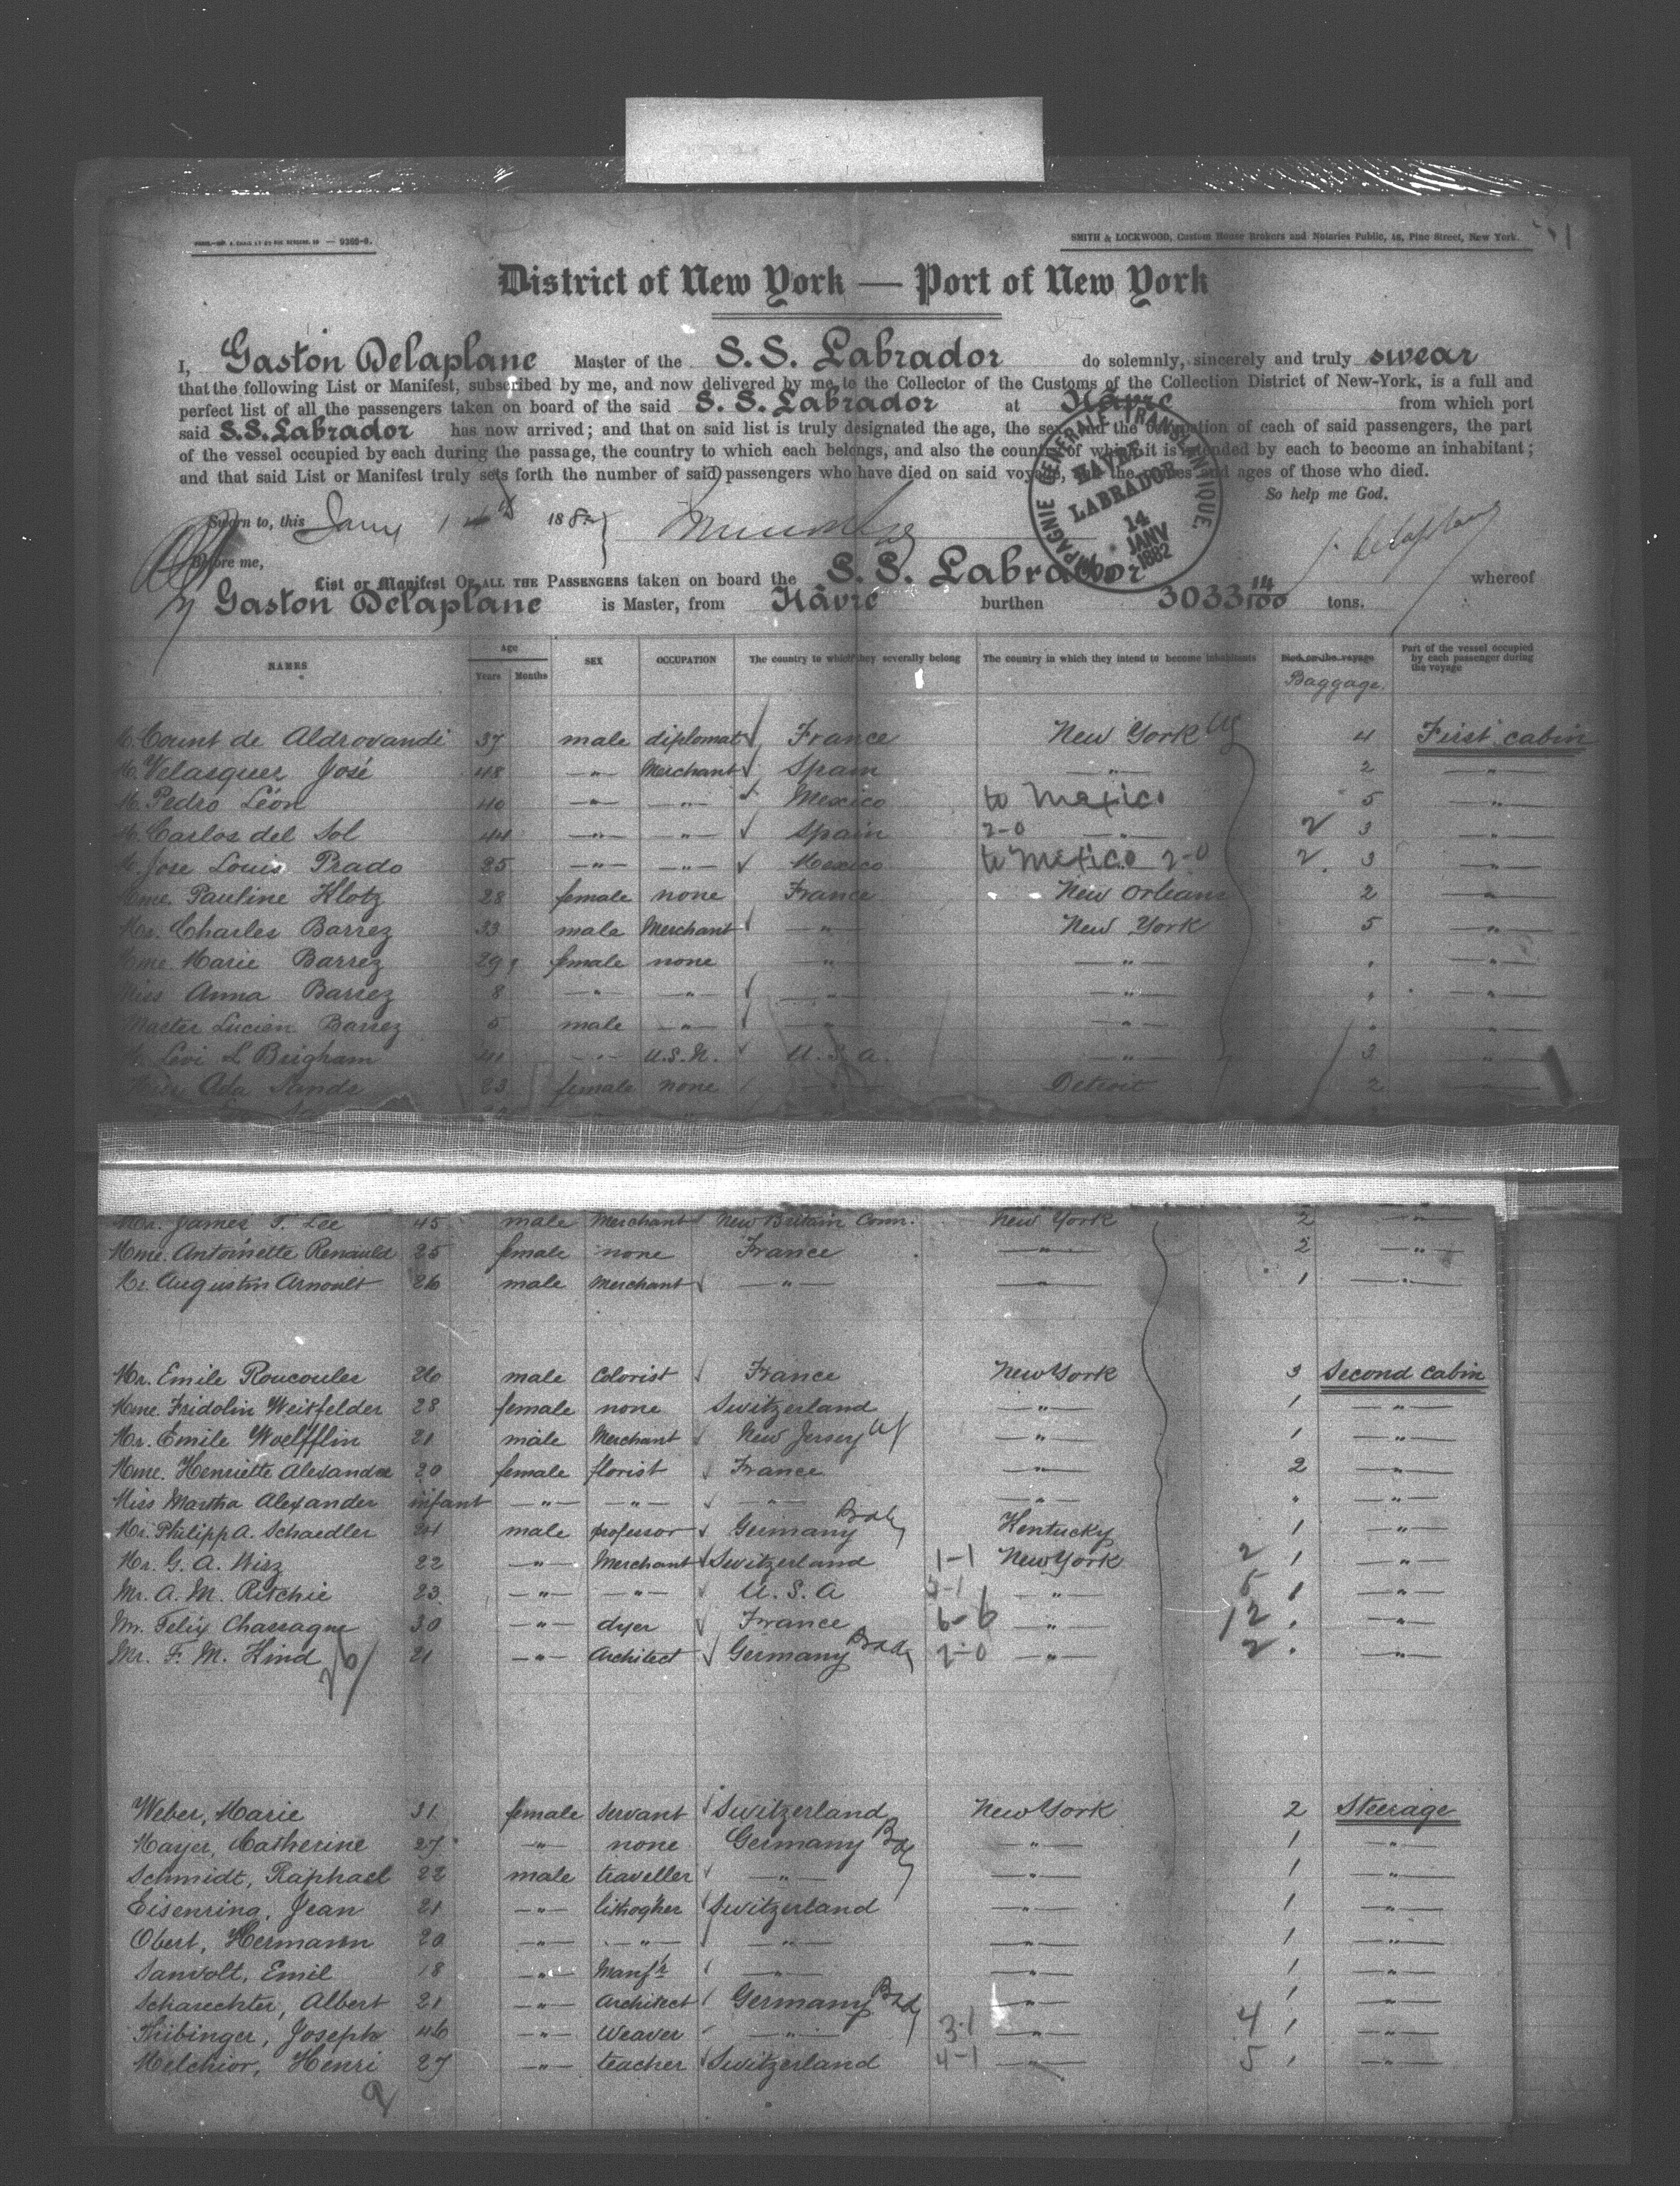 — 9360-8.
SMITH & LOCKWOOD, Custom House Brokers and Notaries Public, 46, Pine Street, New York.
District of New York — Port of New York
I, Gaston Delaplane Master of the S.S. Labrador do solemnly, sincerely and truly swear
that the following List or Manifest, subscribed by me, and now delivered by me to the Collector of the Customs of the Collection District of New-York, is a full and
perfect list of all the passengers taken on board of the said S.S. Labrador at Hâvre from which port
said S.S. Labrador has now arrived; and that on said list is truly designated the age, the sex and the occupation of each of said passengers, the part
of the vessel occupied by each during the passage, the country to which each belongs, and also the country of which it is intended by each to become an inhabitant;
and that said List or Manifest truly sets forth the number of said passengers who have died on said voyage, and the names and ages of those who died.
So help me God.
Sworn to, this Jany 188
Before me,
COMPAGNIE GENERALE TRANSATLANTIQUE.
HAVRE
LABRADOR
14
JANV
1882
List or Manifest OF ALL THE PASSENGERS taken on board the S.S. Labrador whereof
Gaston Delaplane is Master, from Hâvre burthen 3033 14/100 tons.
NAMES Age Years Months SEX OCCUPATION The country to which they severally belong The country in which they intend to become inhabitants Died on the voyage Baggage. Part of the vessel occupied by each passenger during the voyage
M. Count de Aldrovandi 37 male diplomat France New York US 4 First cabin
M. Velasquez José 48 —"— Merchant Spain —"— 2 —"—
M. Pedro Léon 40 —"— —"— Mexico to Mexico 5 —"—
M. Carlos del Sol 44 —"— —"— Spain 2-0 —"— 2 3 —"—
M. Jose Louis Prado 25 —"— —"— Mexico to Mexico 2-0 2 3 —"—
Mme. Pauline Klotz 28 female none France New Orleans 2 —"—
Mr. Charles Barrez 33 male Merchant —"— New York 5 —"—
Mme. Marie Barrez 29 female none —"— —"— " —"—
Miss Anna Barrez 8 —"— —"— —"— —"— " —"—
Master Lucien Barrez 5 male —"— —"— —"— " —"—
M. Levi L Brigham 41 —"— U.S.N. U.S.a. —"— 3 —"—
Miss Ada Sands 23 female none —"— Detroit 2 —"—
Mr. James T. Lee 45 male Merchant New Britain Conn. New York 2 —"—
Mme. Antoinette Renauld 25 female none France —"— 2 —"—
Mr. Augustin Arnoult 26 male Merchant —"— —"— 1 —"—
Mr. Emile Roucouler 26 male Colorist France New York 3 Second cabin
Mme. Fridolin Weitfelder 28 female none Switzerland —"— 1 —"—
Mr. Emile Woelfflin 21 male Merchant New Jersey US —"— 1 —"—
Mme. Henriette Alexandre 20 female florist France —"— 2 —"—
Miss Martha Alexander infant —"— —"— —"— —"— " —"—
Mr. Philipp A. Schaedler 24 male professor Germany Kentucky 1 —"—
Mr. G. A. Wirz 22 —"— Merchant Switzerland 1-1 New York 2 1 —"—
Mr. A. M. Ritchie 23 —"— —"— U.S.A —"— 1 —"—
Mr. Felix Chassagne 30 —"— dyer France 6-6 —"— 12 " —"—
Mr. F. M. Hind 21 —"— Architect Germany 2-0 —"— 2 " —"—
Weber, Marie 31 female servant Switzerland New York 2 Steerage
Mayer, Catherine 27 —"— none Germany —"— 1 —"—
Schmidt, Raphael 22 male traveller —"— —"— 1 —"—
Eisenring, Jean 21 —"— lithogher Switzerland —"— 1 —"—
Obert, Hermann 20 —"— —"— —"— —"— 1 —"—
Sanvolt, Emil 18 —"— Manfr —"— —"— 1 —"—
Schaechter, Albert 21 —"— Architect Germany —"— 1 —"—
Hübinger, Joseph 46 —"— Weaver —"— 3-1 —"— 4 1 —"—
Melchior, Henri 27 —"— teacher Switzerland 4-1 —"— 5 1 —"—
9